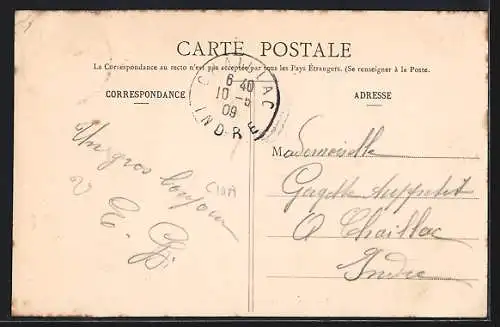 CARTE POSTALE
La Correspondance au recto n'est pas acceptée par tous les Pays Étrangers. (Se renseigner à la Poste.
CORRESPONDANCE
ADRESSE
CHAILLAC
6 40
10 - 5
09
INDRE
Un gros bonjour
Mademoiselle
A Chaillac
Indre